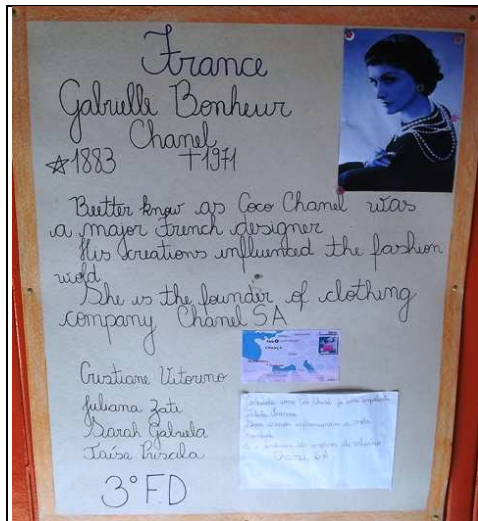 France
Gabrielle Bonheur
Chanel
☆1883 †1971
Beetter know as Coco Chanel was
a major French designer
His creations influenced the fashion
wold
She is the founder of clothing
company Chanel SA
FRANÇA
Cristiane Vitorino
Juliana Zati
Sarah Gabriela
Taísa Priscila
3º F.D
Chanel SA